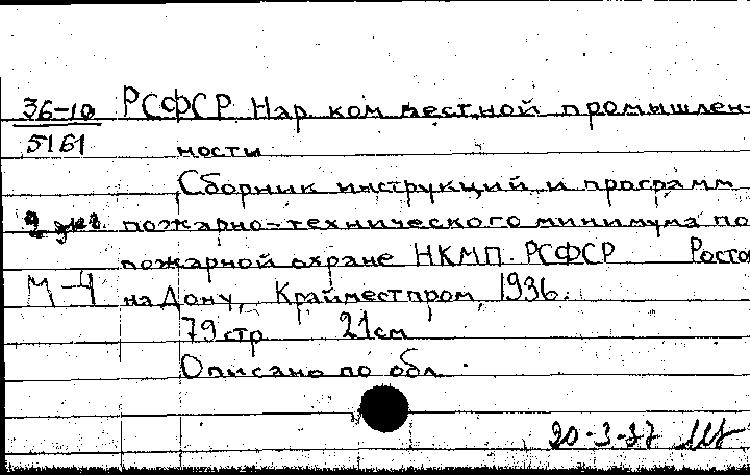 36-10 РСФСР Нар. ком местной промышлен-
5161 ности
Сборник инструкций и программ
2 экз. пожарно-технического минимума по
пожарной охране НКМП РСФСР Росто
М-4 на Дону, Крайместпром, 1936.
79 стр 21 см
Описано по обл.
20-3-37